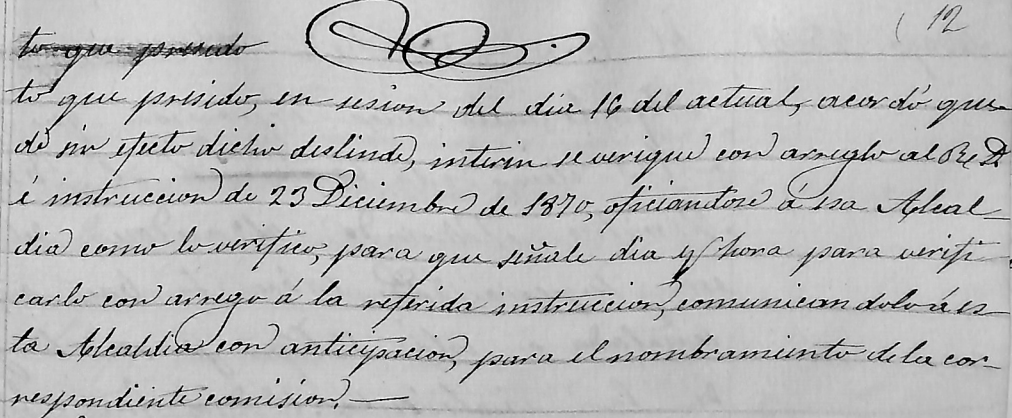 12
to que presido
to que presido, en sesion del dia 16 del actual, acordó que-
de sin efecto dicho deslinde, interin se verique con arreglo al R. D.
é instruccion de 23 Diciembre de 1870, oficiandose á esa Alcal-
dia como lo verifico, para que señale dia y hora para verifi-
carlo con arrego á la referida instruccion, comunicandolo á es-
ta Alcaldia con anticipacion, para el nombramiento de la cor-
respondiente comision.